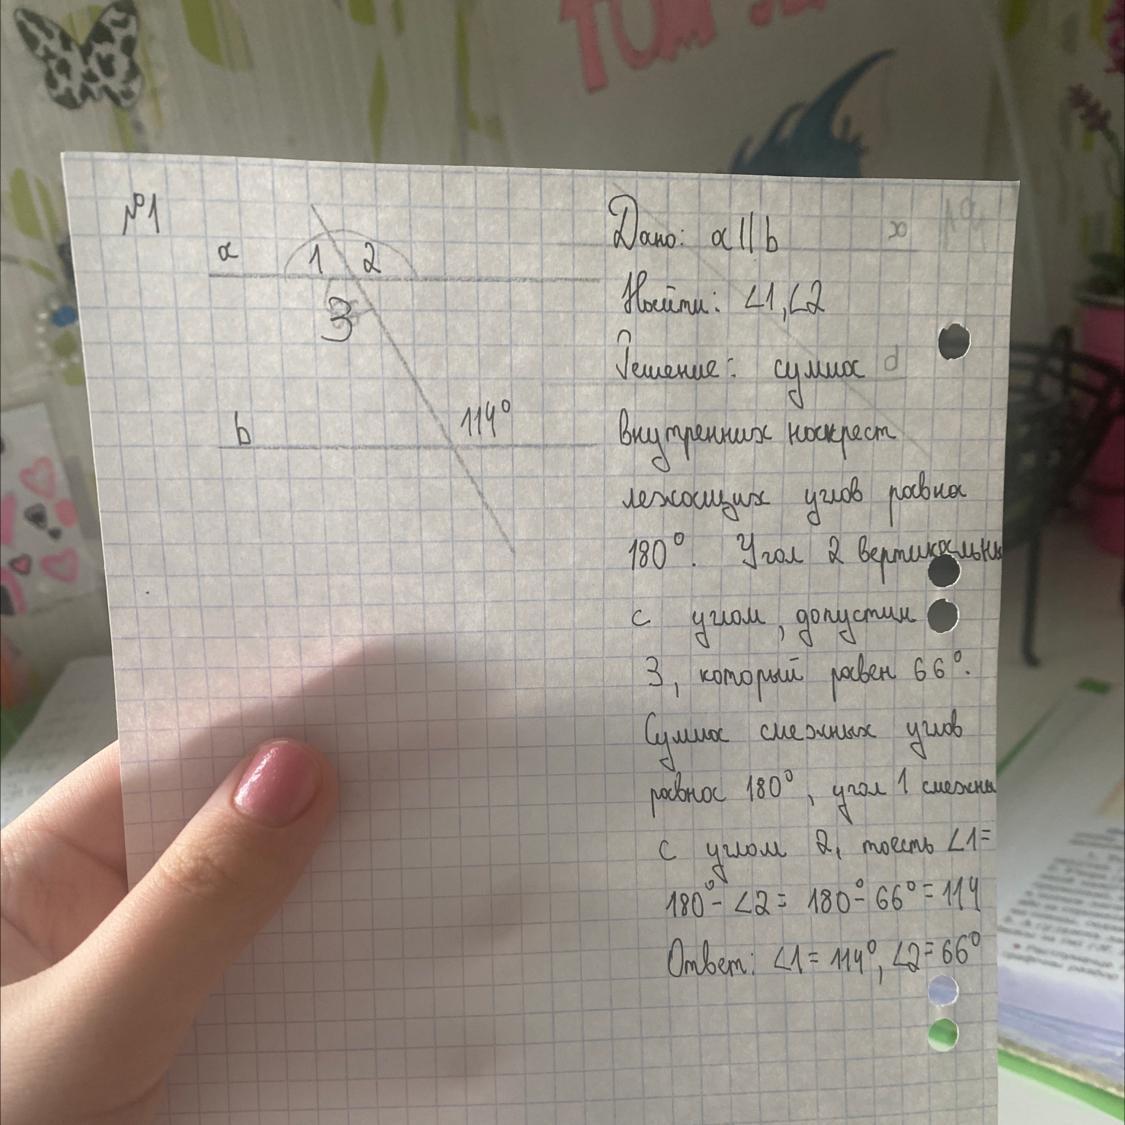 №1
a
1
2
3
b
114°
Дано: a || b
Найти: ∠1, ∠2
Решение: сумма
внутренних накрест
лежащих углов равна
180°. Угол 2 вертикальны
с углом, допустим
3, который равен 66°.
Сумма смежных углов
равна 180°, угол 1 смежны
с углом 2, тоесть ∠1=
180°- ∠2= 180°- 66°= 114
Ответ: ∠1= 114°, ∠2= 66°